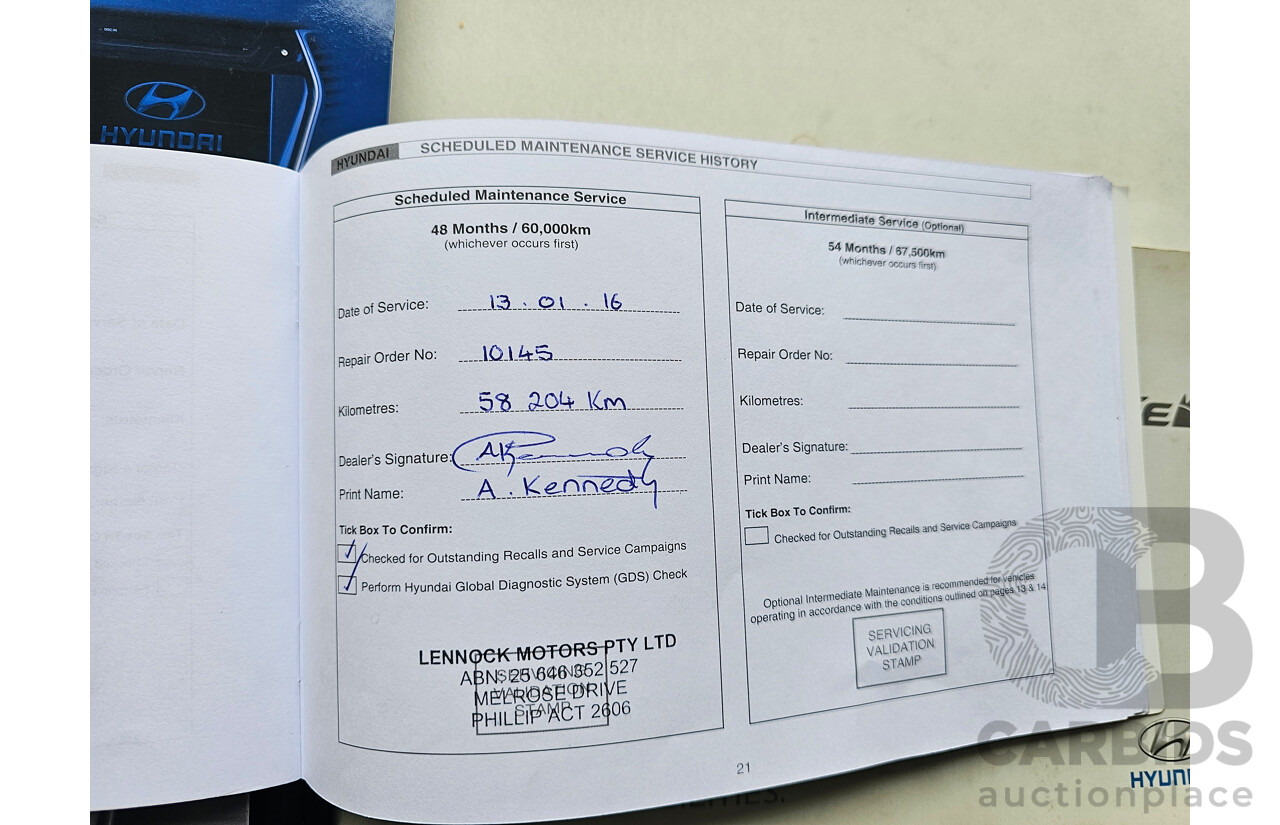 HYUNDAI
HYUNDAI
SCHEDULED MAINTENANCE SERVICE HISTORY
Scheduled Maintenance Service
48 Months / 60,000km
(whichever occurs first)
Date of Service: 13.01.16
Repair Order No: 10145
Kilometres: 58 204 Km
Dealer's Signature: AKennedy
Print Name: A. Kennedy
Tick Box To Confirm:
Checked for Outstanding Recalls and Service Campaigns
Perform Hyundai Global Diagnostic System (GDS) Check
LENNOCK MOTORS PTY LTD
ABN: 25 646 352 527
MELROSE DRIVE
PHILLIP ACT 2606
SERVICING
VALIDATION
STAMP
Intermediate Service (Optional)
54 Months / 67,500km
(whichever occurs first)
Date of Service:
Repair Order No:
Kilometres:
Dealer's Signature:
Print Name:
Tick Box To Confirm:
Checked for Outstanding Recalls and Service Campaigns
Optional Intermediate Maintenance is recommended for vehicles
operating in accordance with the conditions outlined on pages 13 & 14
SERVICING
VALIDATION
STAMP
21
HYUN
CARBIDS
auctionplace